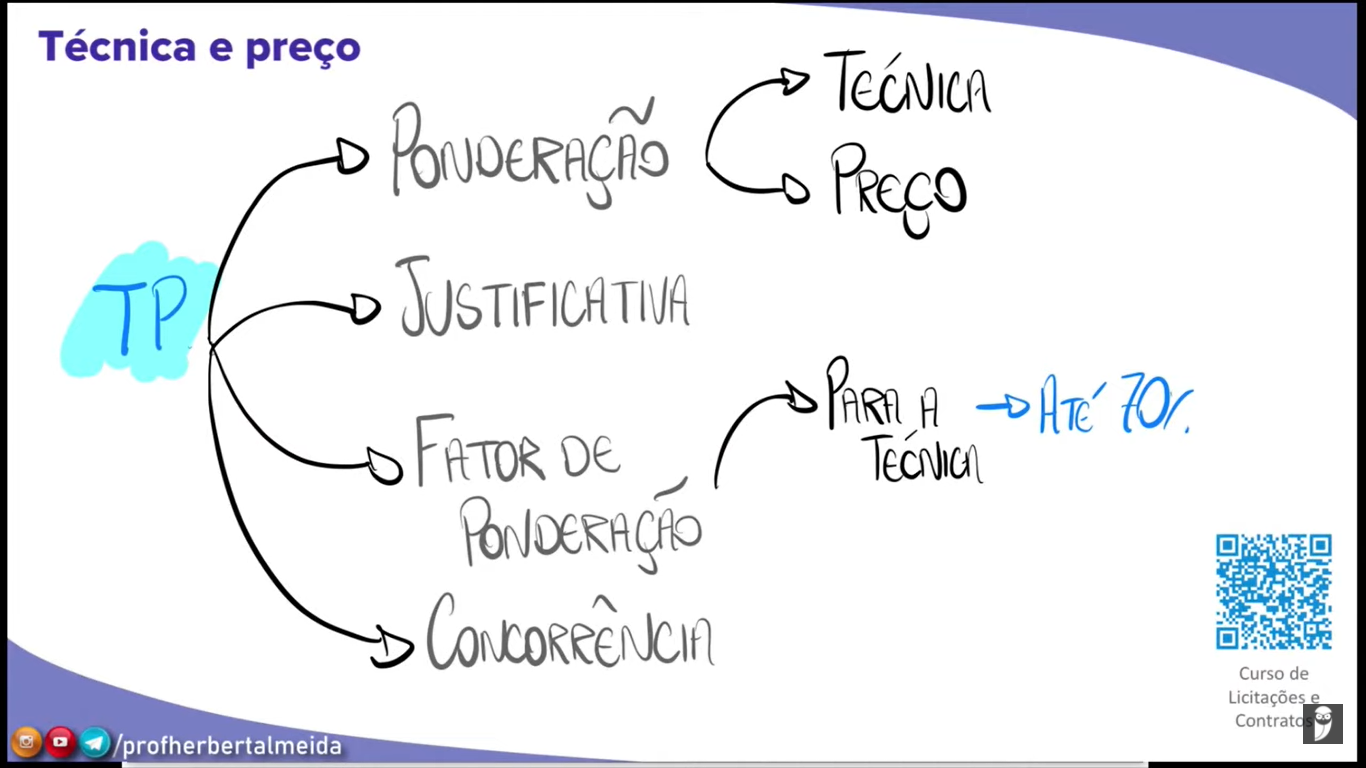 Técnica e preço
TP
PONDERAÇÃO
TÉCNICA
PREÇO
JUSTIFICATIVA
FATOR DE
PONDERAÇÃO
PARA A
TÉCNICA
ATÉ 70%
CONCORRÊNCIA
Curso de
Licitações e
Contratos
/profherbertalmeida